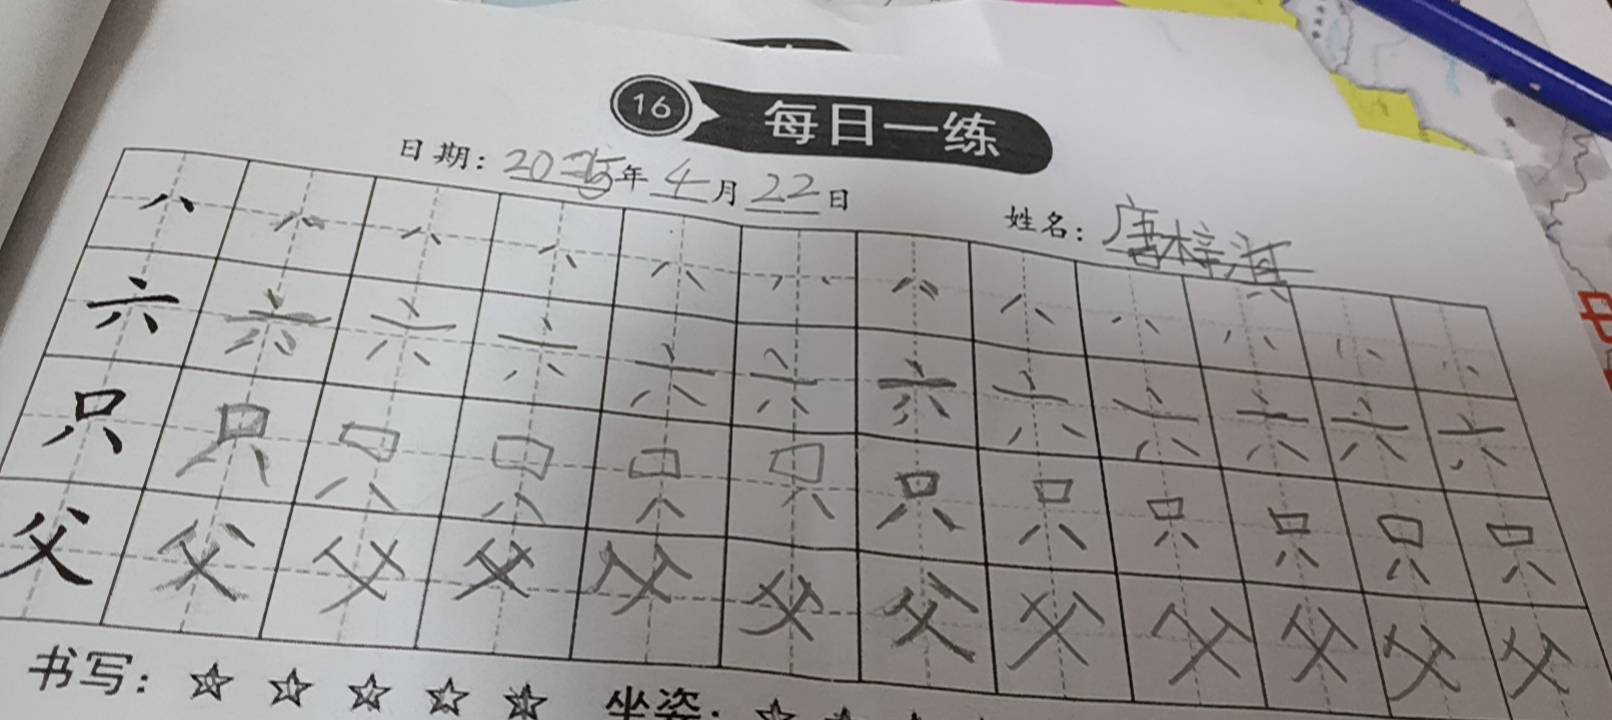 16 每日一练
日期: 2025年4月22日
姓名: 唐梓淇
八 八 八 八 八 八 八 八 八 八 八 八
六 六 六 六 六 六 六 六 六 六 六 六
只 只 只 只 只 只 只 只 只 只 只 只
父 父 父 父 父 父 父 父 父 父 父 父
书写: ☆ ☆ ☆ ☆ ☆ 坐姿: